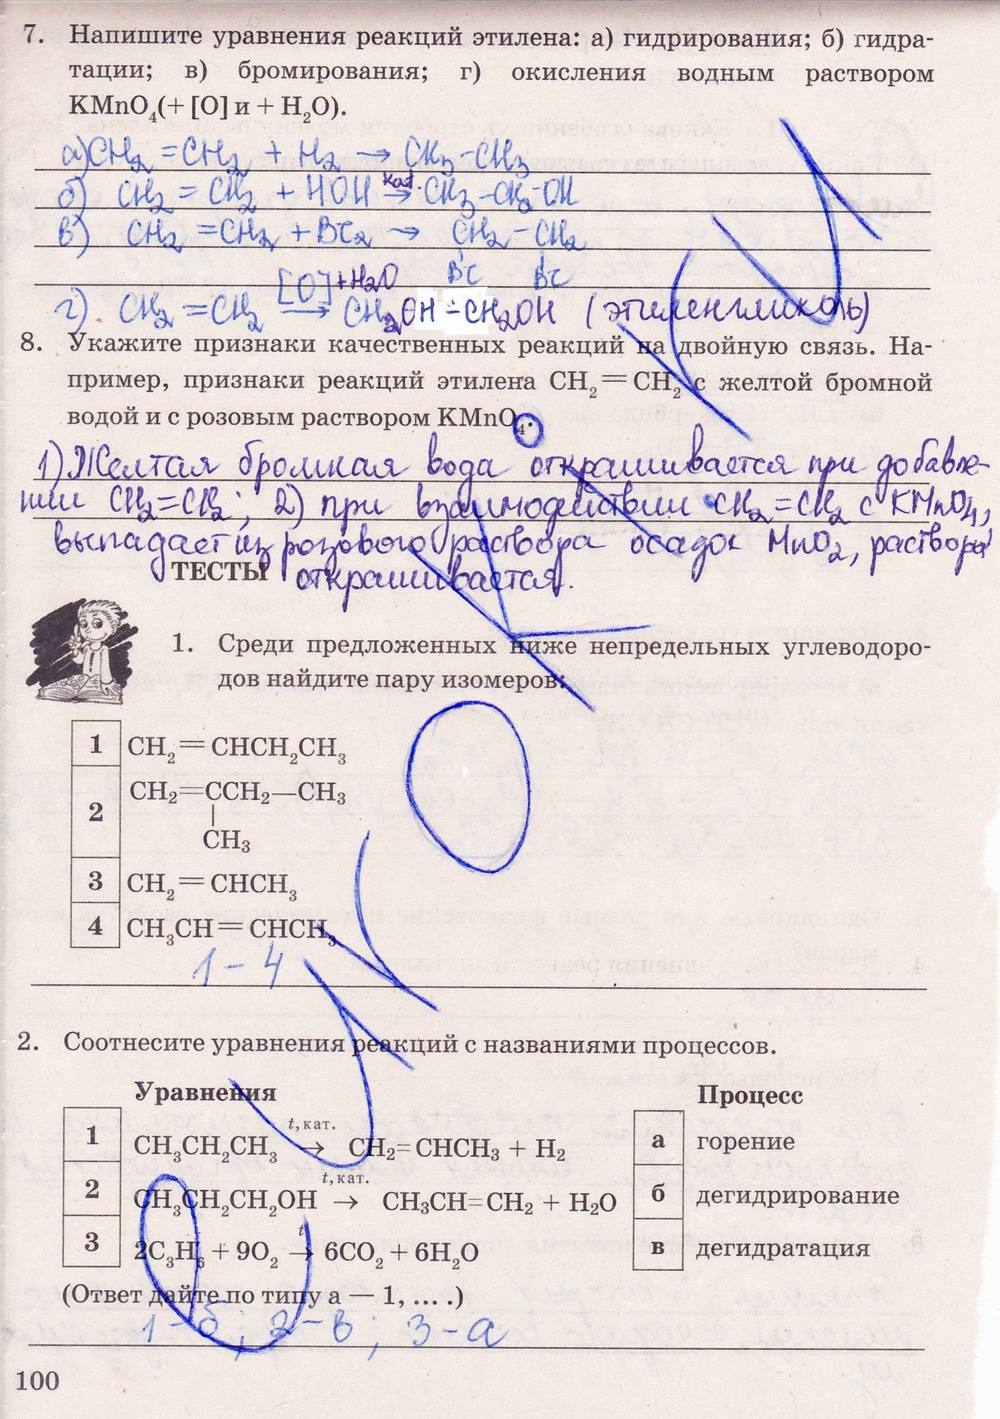 7. Напишите уравнения реакций этилена: а) гидрирования; б) гидра-
тации; в) бромирования; г) окисления водным раствором
KMnO₄(+ [O] и + H₂O).
а) CH₂ = CH₂ + H₂ → CH₃–CH₃
б) CH₂ = CH₂ + HOH →кат CH₃–CH₂–OH
в) CH₂ = CH₂ + Br₂ → CH₂ – CH₂
Br Br
[O] +H₂O
г). CH₂ = CH₂ → CH₂OH – CH₂OH (этиленгликоль)
8. Укажите признаки качественных реакций на двойную связь. На-
пример, признаки реакций этилена CH₂=CH₂ с желтой бромной
водой и с розовым раствором KMnO₄.
1) Желтая бромная вода открашивается при добавле-
нии CH₂=CH₂; 2) при взаимодействии CH₂=CH₂ с KMnO₄,
выпадает из розового раствора осадок MnO₂, раствора
ТЕСТЫ открашивается.
1. Среди предложенных ниже непредельных углеводоро-
дов найдите пару изомеров:
1 CH₂=CHCH₂CH₃
2 CH₂=CCH₂—CH₃
|
CH₃
3 CH₂=CHCH₃
4 CH₃CH=CHCH₃
1 – 4
2. Соотнесите уравнения реакций с названиями процессов.
Уравнения Процесс
1 CH₃CH₂CH₃ t, кат. → CH₂=CHCH₃ + H₂ а горение
2 CH₃CH₂CH₂OH t, кат. → CH₃CH=CH₂ + H₂O б дегидрирование
3 2C₃H₆ + 9O₂ t → 6CO₂ + 6H₂O в дегидратация
(Ответ дайте по типу а — 1, ... .)
1 – б ; 2 – в ; 3 – а
100